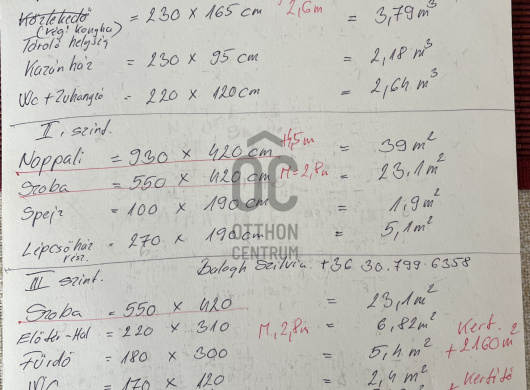 Közlekedő = 230 × 165 cm 2,6m = 3,79 m³
(régi konyha)
Tároló helység
Kazán ház = 230 × 95 cm = 2,18 m³
Wc + Zuhanyzó = 220 × 120 cm = 2,64 m³
II. szint.
Nappali = 930 × 420 cm 4,5m = 39 m²
Szoba = 550 × 420 cm M=2,8m = 23,1 m²
Spejz = 100 × 190 cm = 1,9 m²
Lépcsőház = 270 × 190 cm = 5,1 m²
rész.
OC
OTTHON
CENTRUM
III szint. Balogh Szilvia. +36 30.799.6358
Szoba = 550 × 420 = 23,1 m²
Előtér-Hal = 220 × 310 M, 2,8m = 6,82 m² Kert.
Fürdő = 180 × 300 = 5,4 m² +2160 m²
WC = 170 × 120 = 2,4 m²